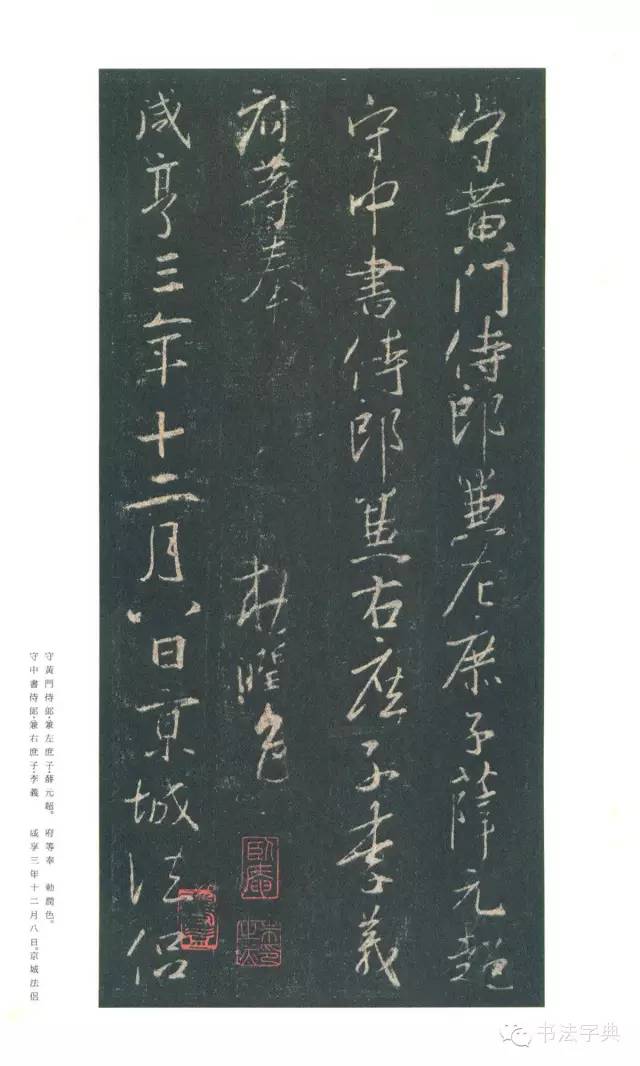 守黄門侍郎兼左庶子薛元超
守中書侍郎兼右庶子李義
府等奉 勅潤色
咸亨三年十二月八日京城法侶
臥庵
守黃門侍郎·兼左庶子·薛元超。 府等奉 勅潤色。
守中書侍郎·兼右庶子·李義 咸享三年十二月八日。京城法侶
书法字典